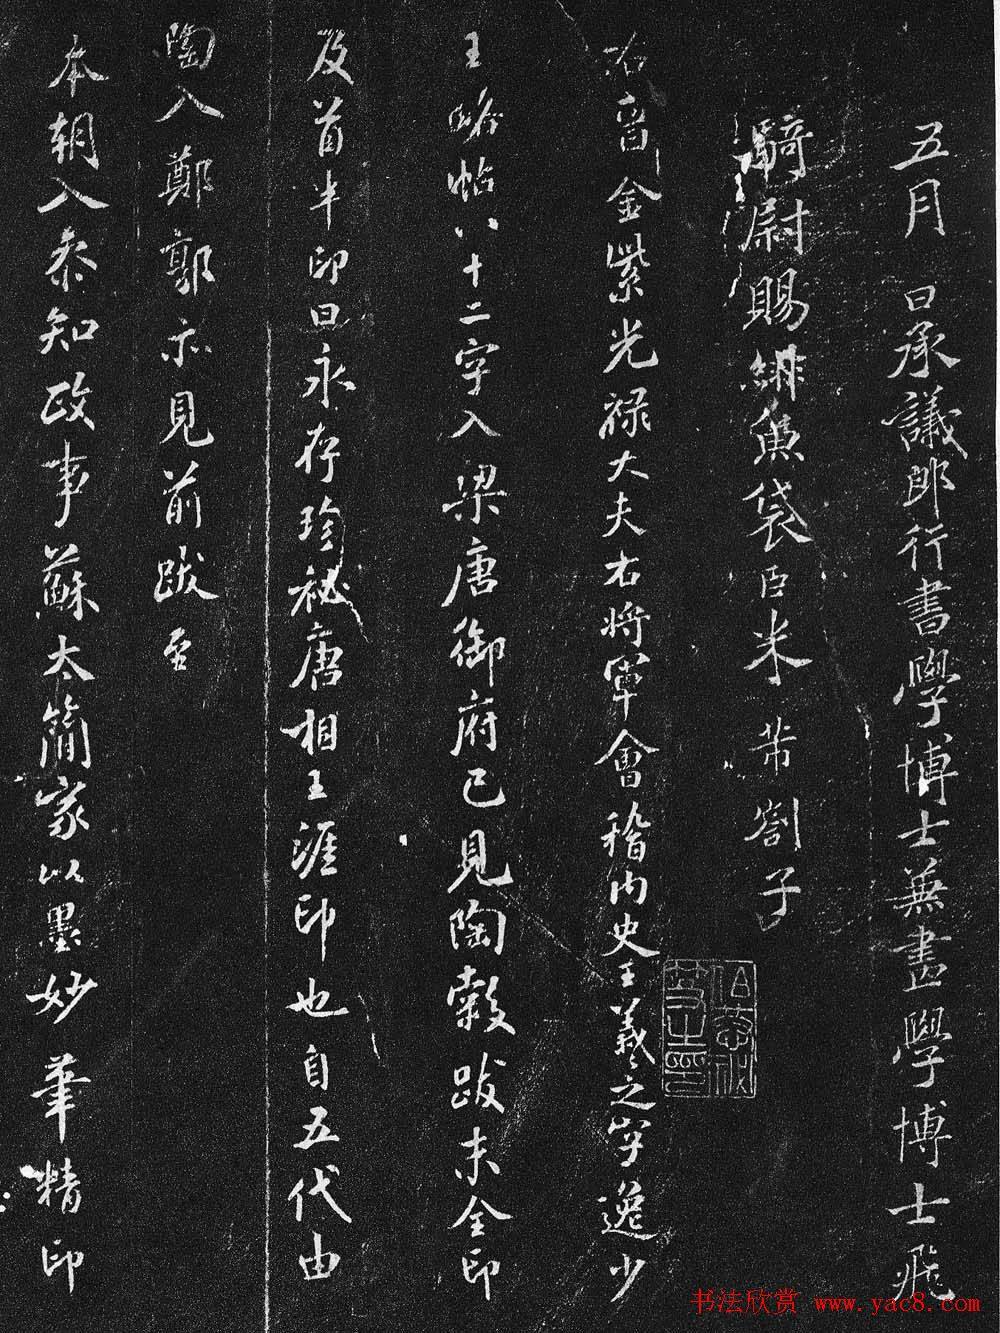 五月 日承議郎行書學博士兼畫學博士飛
騎尉賜緋魚袋臣米芾劄子
右晉金紫光祿大夫右將軍會稽內史王羲之字逸少
王略帖八十二字入梁唐御府已見陶穀跋末全印
及首半印曰永存珍秘唐相王涯印也自五代由
陶入鄭郭亦見前跋至
本朝入叅知政事蘇太簡家以墨妙筆精印
书法欣赏 www.yac8.com